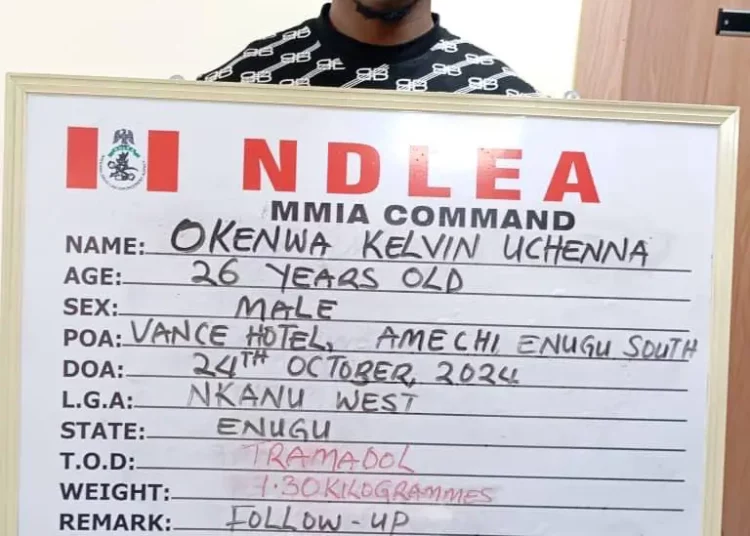 NDLEA
MMIA COMMAND
NAME: OKENWA KELVIN UCHENNA
AGE: 26 YEARS OLD
SEX: MALE
POA: VANCE HOTEL, AMECHI, ENUGU SOUTH
DOA: 24TH OCTOBER, 2024
L.G.A: NKANU WEST
STATE: ENUGU
T.O.D: TRAMADOL
WEIGHT: 7.30KILOGRAMMES
REMARK: FOLLOW-UP